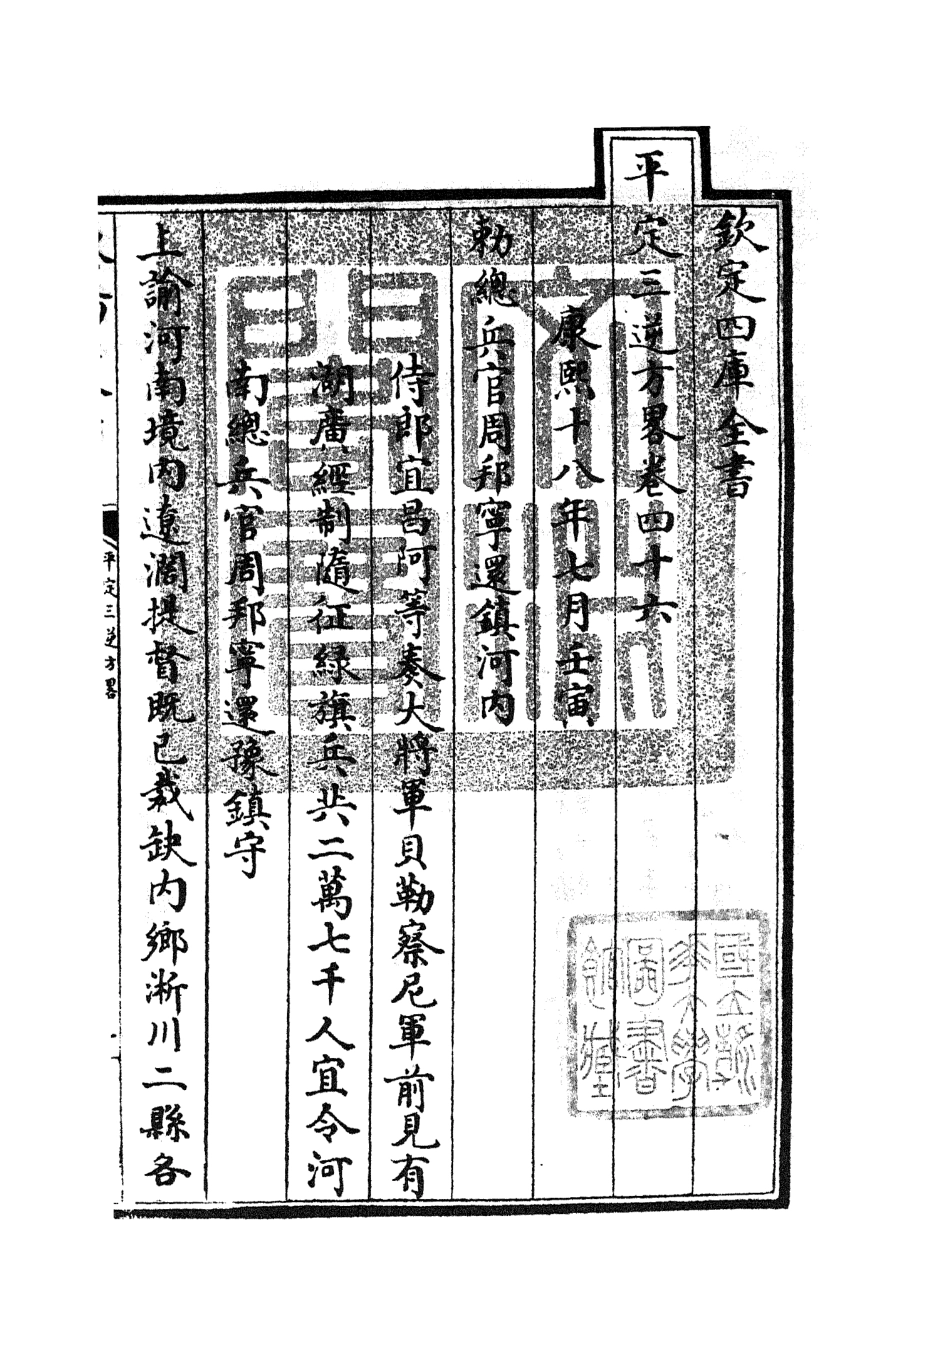 欽定四庫全書
平定三逆方畧卷四十六
康熙十八年七月壬寅
勅總兵官周邦寧還鎮河内
侍郎宜昌阿等奏大將軍貝勒察尼軍前見有
湖廣經制隨征綠旗兵共二萬七千人宜令河
南總兵官周邦寧還豫鎮守
上諭河南境内遼濶提督既已裁缺内鄉淅川二縣各
平定三逆方畧
文淵閣寳
國立浙江大學圖書館藏